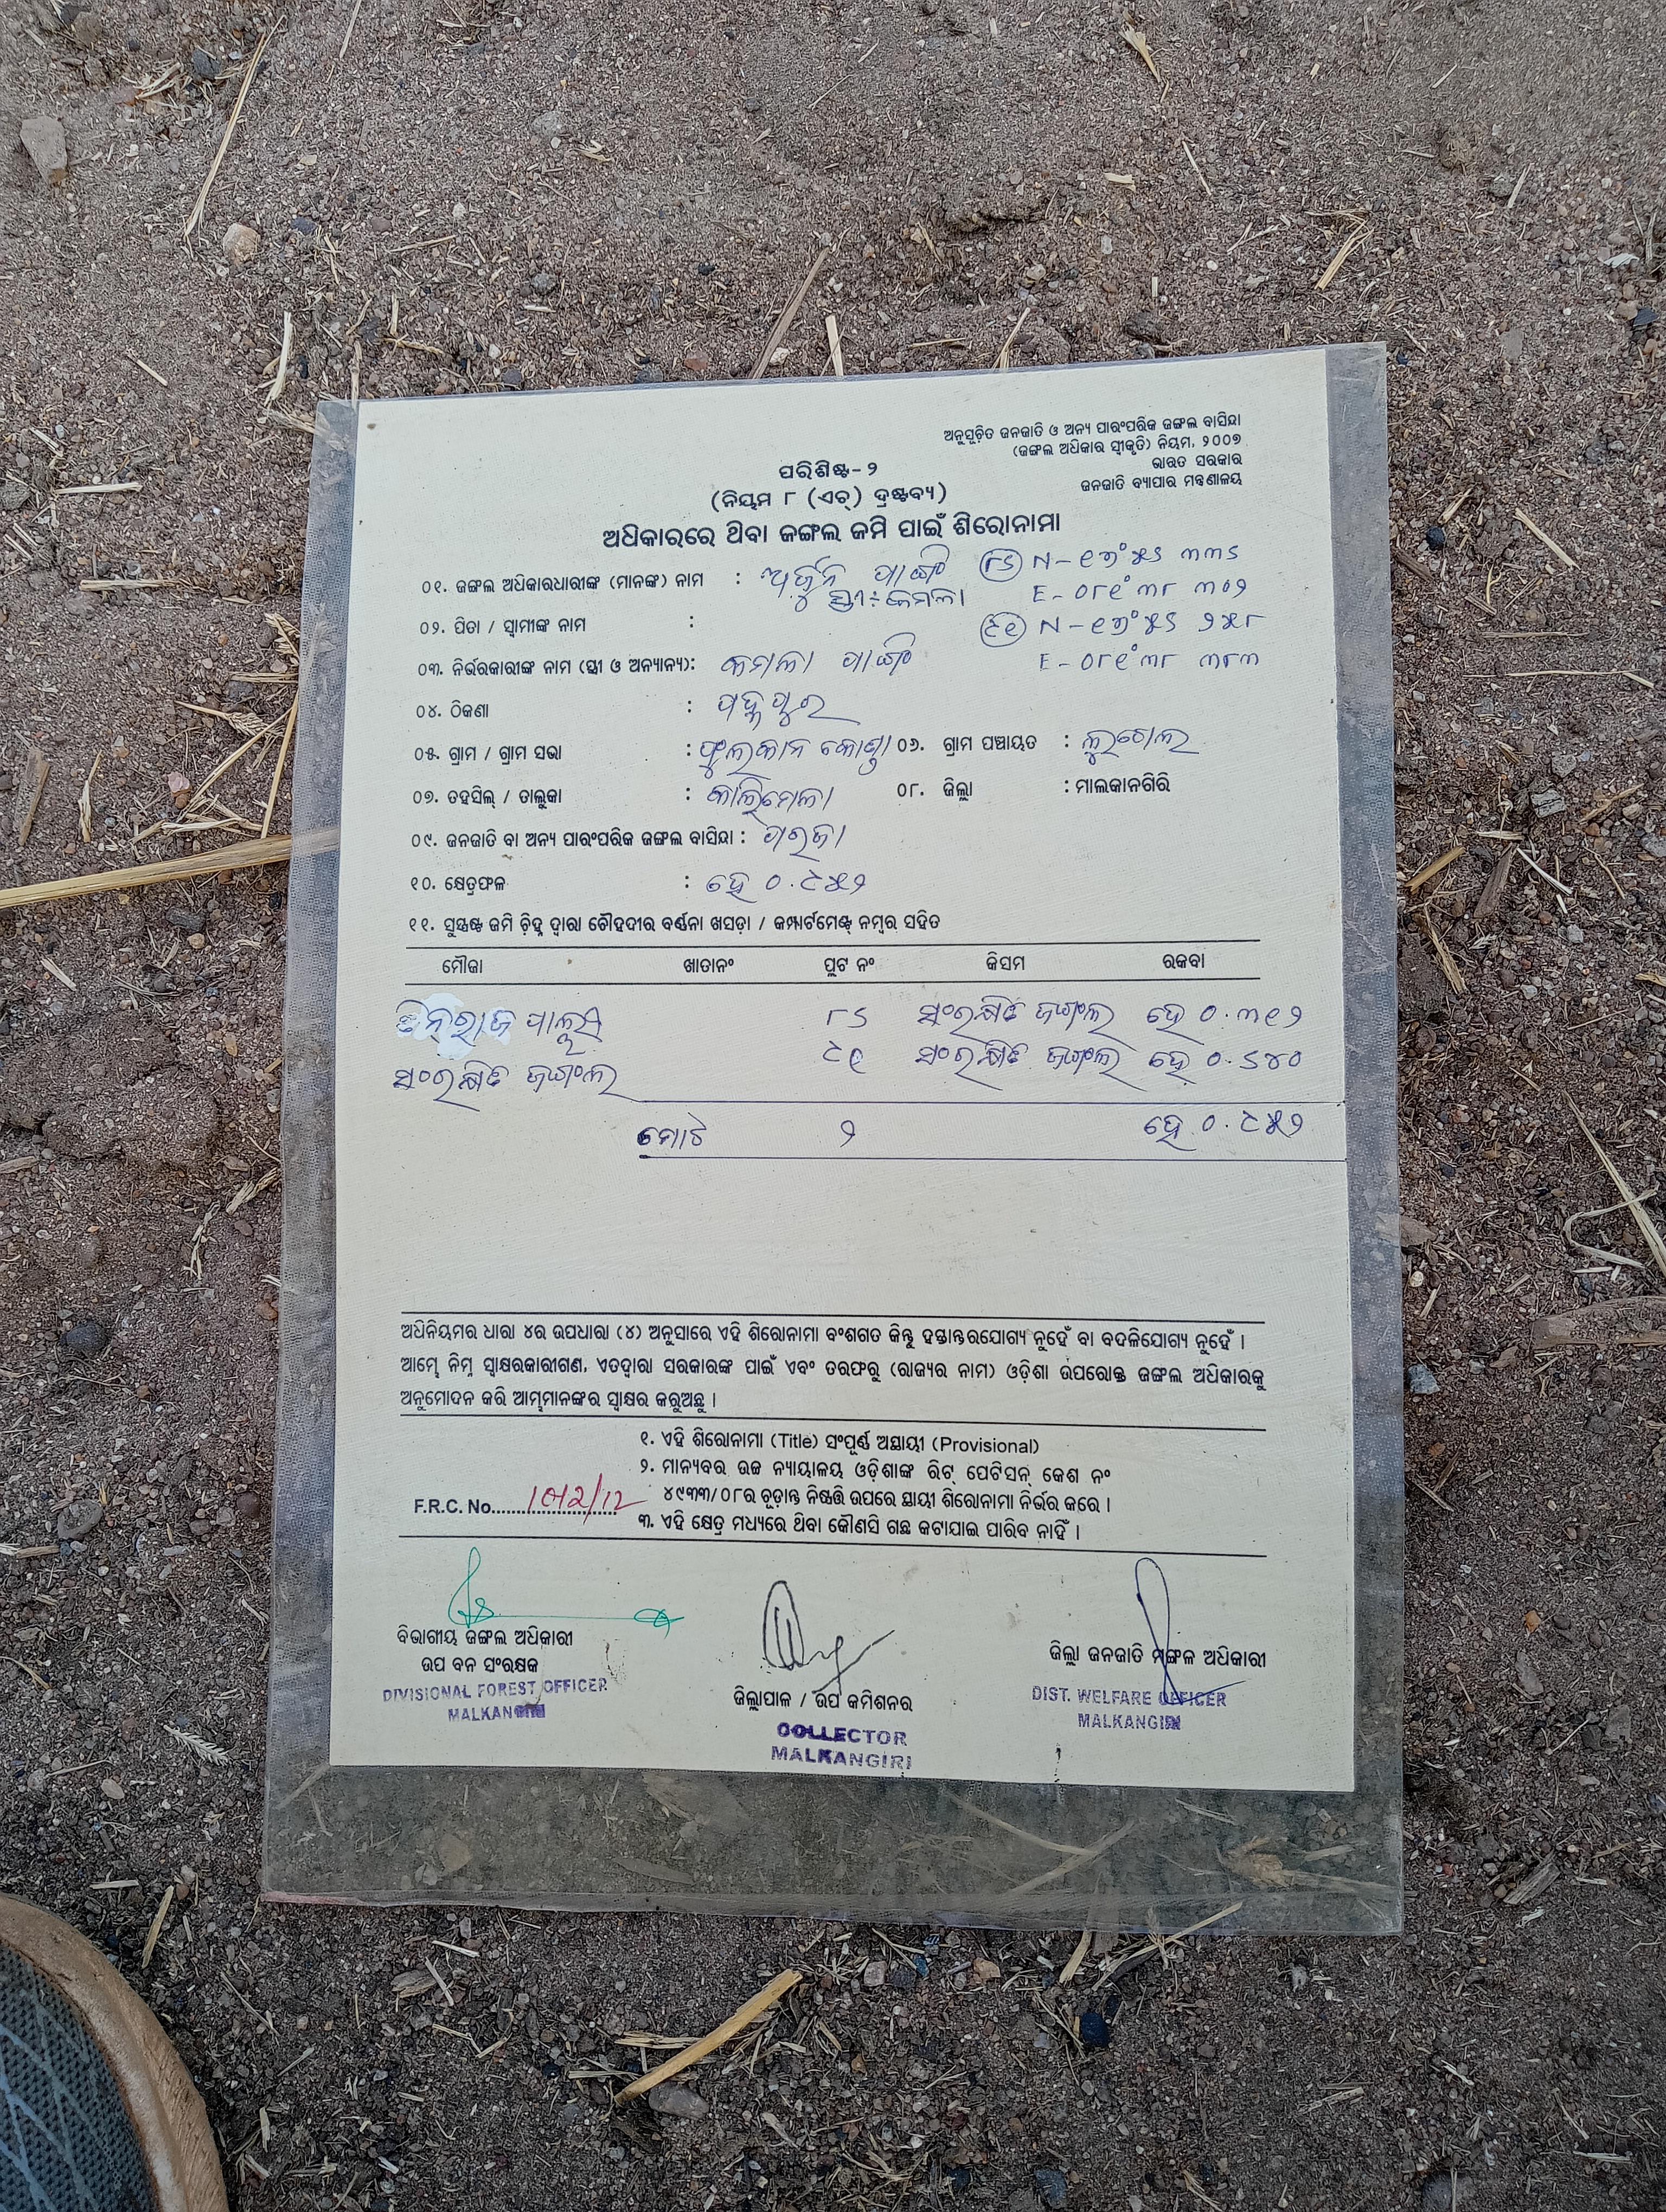 ଅନୁସୂଚିତ ଜନଜାତି ଓ ଅନ୍ୟ ପାରଂପରିକ ଜଙ୍ଗଲ ବାସିନ୍ଦା
(ଜଙ୍ଗଲ ଅଧିକାର ସ୍ୱୀକୃତି) ନିୟମ, ୨୦୦୭
ଭାରତ ସରକାର
ଜନଜାତି ବ୍ୟାପାର ମନ୍ତ୍ରଣାଳୟ
ପରିଶିଷ୍ଟ-୨
(ନିୟମ ୮ (ଏଚ୍) ଦ୍ରଷ୍ଟବ୍ୟ)
ଅଧିକାରରେ ଥିବା ଜଙ୍ଗଲ ଜମି ପାଇଁ ଶିରୋନାମା
୦୧. ଜଙ୍ଗଲ ଅଧିକାରଧାରୀଙ୍କ (ମାନଙ୍କ) ନାମ : ଅର୍ଜୁନ ପାଙ୍ଗି
ସ୍ତ୍ରୀ: କମଳା
୦୨. ପିତା / ସ୍ୱାମୀଙ୍କ ନାମ :
୦୩. ନିର୍ଭରକାରୀଙ୍କ ନାମ (ସ୍ତ୍ରୀ ଓ ଅନ୍ୟାନ୍ୟ): କମଳା ପାଙ୍ଗି
୦୪. ଠିକଣା : ପଦ୍ମପୁର
୦୫. ଗ୍ରାମ / ଗ୍ରାମ ସଭା : ଫୁଲକାନ କୋଣ୍ଡା ୦୬. ଗ୍ରାମ ପଞ୍ଚାୟତ :
୦୭. ତହସିଲ୍ / ତାଲୁକା : କାଲିମେଲା ୦୮. ଜିଲ୍ଲା : ମାଲକାନଗିରି
୦୯. ଜନଜାତି ବା ଅନ୍ୟ ପାରଂପରିକ ଜଙ୍ଗଲ ବାସିନ୍ଦା : ପରଜା
୧୦. କ୍ଷେତ୍ରଫଳ : ହେ ୦.୯୫୨
୧୧. ସୁସ୍ପଷ୍ଟ ଜମି ଚିହ୍ନ ଦ୍ୱାରା ଚୌହଦୀର ବର୍ଣ୍ଣନା ଖସଡ଼ା / କମ୍ପାର୍ଟମେଣ୍ଟ୍ ନମ୍ବର ସହିତ
ମୌଜା ଖାତାନଂ ପ୍ଲଟ ନଂ କିସମ ରକବା
୮୬ ସଂରକ୍ଷିତ ଜଙ୍ଗଲ ହେ ୦.୩୧୨
୯୧ ସଂରକ୍ଷିତ ଜଙ୍ଗଲ ହେ ୦.୬୪୦
ସଂରକ୍ଷିତ ଜଙ୍ଗଲ
ମୋଟ ୨ ହେ ୦.୯୫୨
ଅଧିନିୟମର ଧାରା ୪ର ଉପଧାରା (୪) ଅନୁସାରେ ଏହି ଶିରୋନାମା ବଂଶଗତ କିନ୍ତୁ ହସ୍ତାନ୍ତରଯୋଗ୍ୟ ନୁହେଁ ବା ବଦଳିଯୋଗ୍ୟ ନୁହେଁ ।
ଆମ୍ଭେ ନିମ୍ନ ସ୍ୱାକ୍ଷରକାରୀଗଣ, ଏତଦ୍ୱାରା ସରକାରଙ୍କ ପାଇଁ ଏବଂ ତରଫରୁ (ରାଜ୍ୟର ନାମ) ଓଡ଼ିଶା ଉପରୋକ୍ତ ଜଙ୍ଗଲ ଅଧିକାରକୁ
ଅନୁମୋଦନ କରି ଆମ୍ଭମାନଙ୍କର ସ୍ୱାକ୍ଷର କରୁଅଛୁ ।
୧. ଏହି ଶିରୋନାମା (Title) ସଂପୂର୍ଣ୍ଣ ଅସ୍ଥାୟୀ (Provisional)
୨. ମାନ୍ୟବର ଉଚ୍ଚ ନ୍ୟାୟାଳୟ ଓଡ଼ିଶାଙ୍କ ରିଟ୍ ପେଟିସନ୍ କେଶ ନଂ
୪୯୩୩/୦୮ର ଚୂଡ଼ାନ୍ତ ନିଷ୍ପତ୍ତି ଉପରେ ସ୍ଥାୟୀ ଶିରୋନାମା ନିର୍ଭର କରେ ।
F.R.C. No.
୩. ଏହି କ୍ଷେତ୍ର ମଧ୍ୟରେ ଥିବା କୌଣସି ଗଛ କଟାଯାଇ ପାରିବ ନାହିଁ ।
ବିଭାଗୀୟ ଜଙ୍ଗଲ ଅଧିକାରୀ
ଉପ ବନ ସଂରକ୍ଷକ
DIVISIONAL FOREST OFFICER
MALKANGIRI
ଜିଲ୍ଲାପାଳ / ଉପ କମିଶନର
COLLECTOR
MALKANGIRI
ଜିଲ୍ଲା ଜନଜାତି ମଙ୍ଗଳ ଅଧିକାରୀ
DIST. WELFARE OFFICER
MALKANGIRI